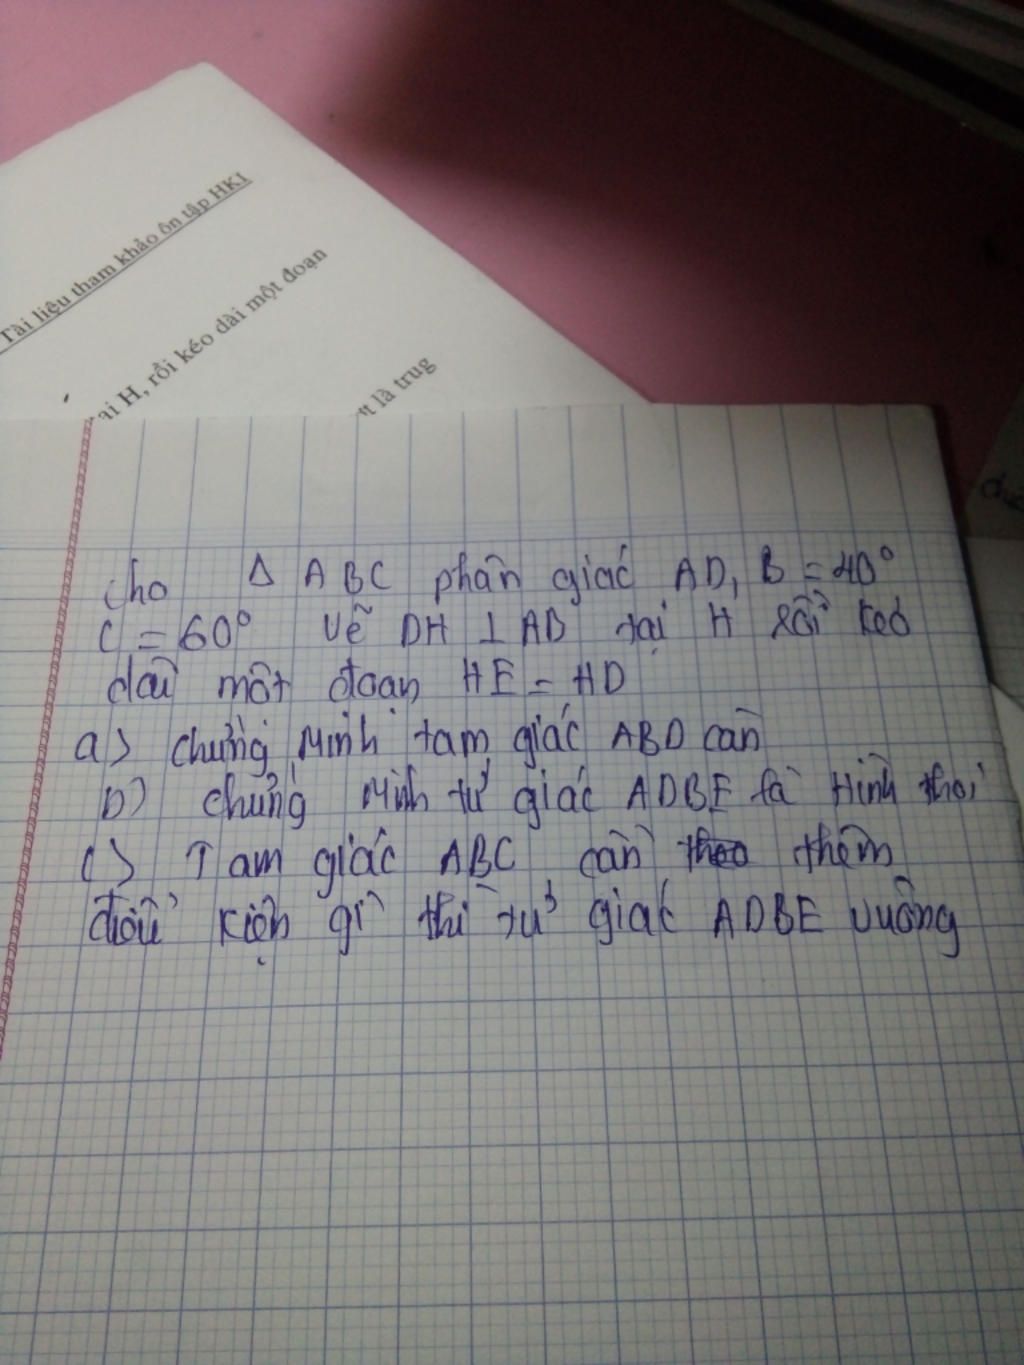 Tài liệu tham khảo ôn tập HKI
tại H, rồi kéo dài một đoạn
là trug
Cho Δ ABC phân giác AD, B = 40°
C = 60° Vẽ DH ⊥ AB tại H rồi kéo
dài một đoạn HE = HD
a) chứng Minh tam giác ABD cân
b) chứng Minh tứ giác ADBE là Hình thoi
c) Tam giác ABC cần thêm
điều kiện gì thì tứ giác ADBE vuông